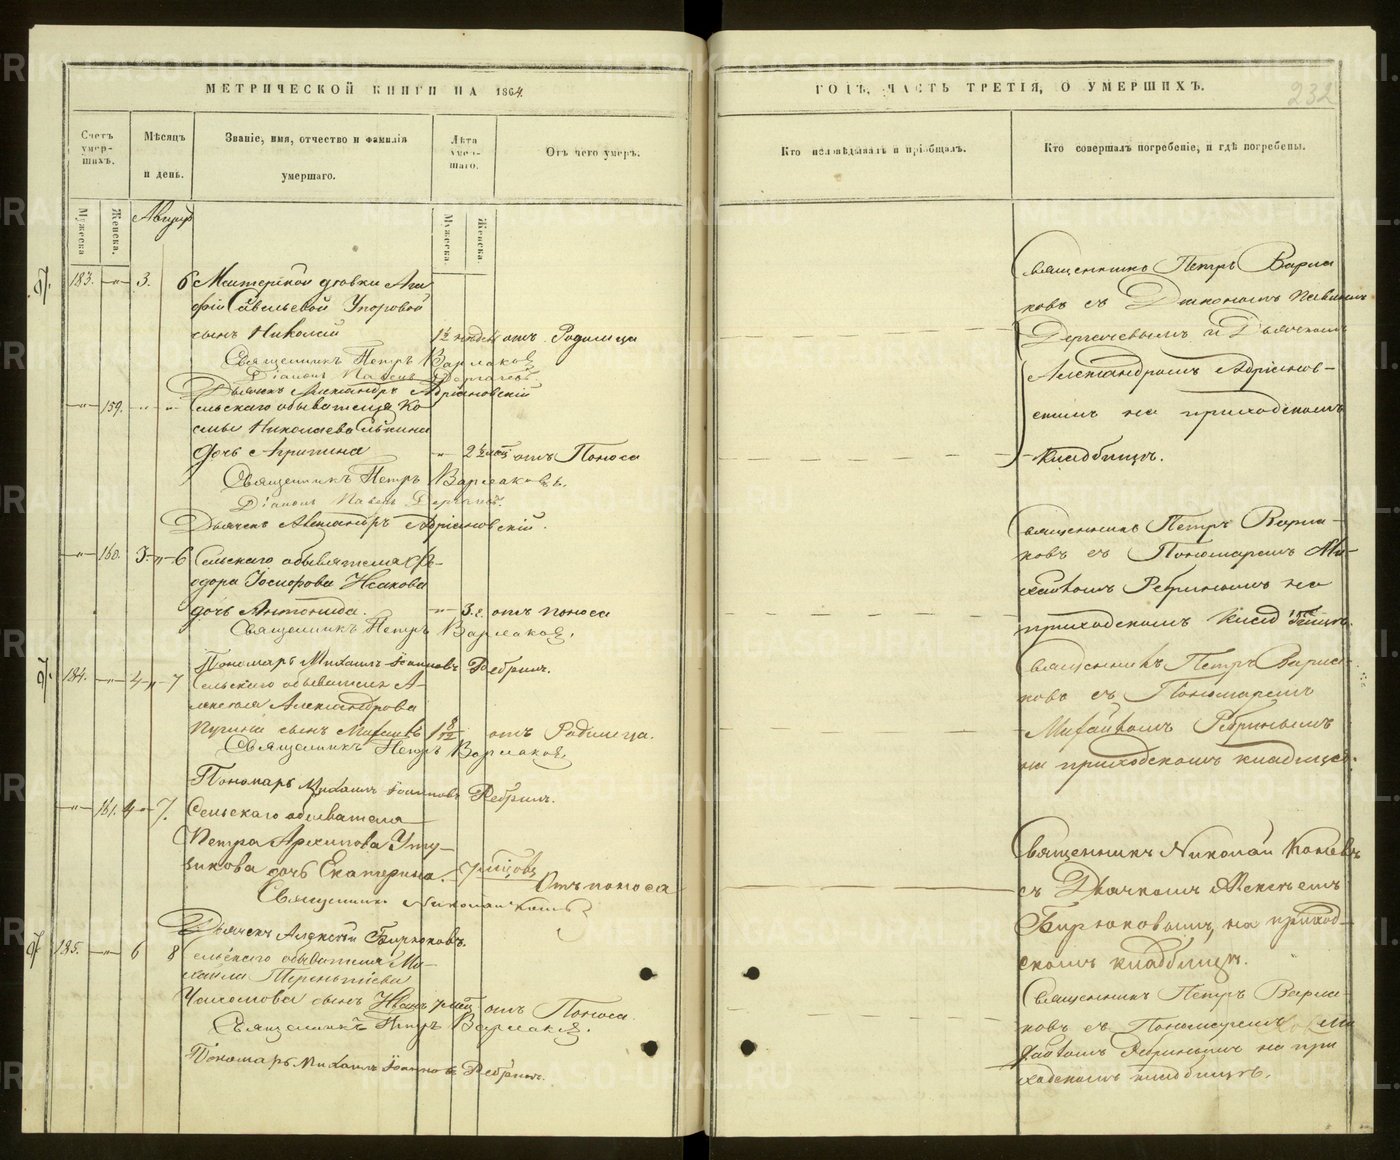 МЕТРИЧЕСКОЙ КНИГИ НА 1864
ГОДЪ, ЧАСТЬ ТРЕТІЯ, О УМЕРШИХЪ.
232
Счетъ умер-
шихъ.
Мѣсяцъ
и день.
Званіе, имя, отчество и фамилія
умершаго.
Лѣта
умер-
шаго.
Отъ чего умеръ.
Кто исповѣдывалъ и пріобщалъ.
Кто совершалъ погребеніе, и гдѣ погребены.
Мужеска
Женска.
Августъ
Мужеска
Женска.
183. 3. 6 Мастерской дѣвки Ага
фіи Савельевой Упоровой
сынъ Николай 1½ недѣли отъ Родимца
Священникъ Петръ Варлаковъ
Діаконъ Павелъ Дергачевъ
Дьячекъ Александръ Адріановскій
Священникъ Петръ Варла
ковъ съ Діакономъ Павломъ
Дергачевымъ и Дьячкомъ
Александромъ Адріанов-
скимъ на приходскомъ
кладбищѣ.
159. Сельскаго обывателя Ко
смы Николаева
дочь Агрипина 2½ мѣс отъ Поноса
Священникъ Петръ Варлаковъ.
Діаконъ Павелъ Дергачевъ.
Дьячекъ Александръ Адріановскій.
160. 3. 6 Сельскаго обывателя Ѳе-
одора Іосифова Исакова
дочь Антонида. 3. г. отъ поноса
Священникъ Петръ Варлаковъ.
Пономарь Михаилъ Іоанновъ Ребринъ.
Священникъ Петръ Варла-
ковъ съ Пономаремъ Ми-
хаиломъ Ребринымъ на
приходскомъ кладбищѣ.
184. 4 7 Сельскаго обывателя А-
лексѣя Александрова
сынъ Михаилъ 1 8/12 отъ Родимца.
Священникъ Петръ Варлаковъ.
Пономарь Михаилъ Іоанновъ Ребринъ.
Священникъ Петръ Варла-
ковъ съ Пономаремъ
Михаиломъ Ребринымъ
на приходскомъ кладбищѣ.
161. 4 7. Сельскаго обывателя
Петра Архипова
дочь Екатерина. 7 мѣсяцовъ Отъ поноса
Священникъ Николай
Дьячекъ Алексѣй Бирюковъ.
Священникъ Николай
съ Дьячкомъ Алексѣемъ
Бирюковымъ, на приход-
скомъ кладбищѣ.
185. 6 8 Сельскаго обывателя Ми-
хаила Терентіева
сынъ Иванъ 7 мѣс отъ Поноса.
Священникъ Петръ Варлаковъ.
Пономарь Михаилъ Іоанновъ Ребринъ.
Священникъ Петръ Варла-
ковъ съ Пономаремъ Ми
хаиломъ Ребринымъ на при
ходскомъ кладбищѣ.